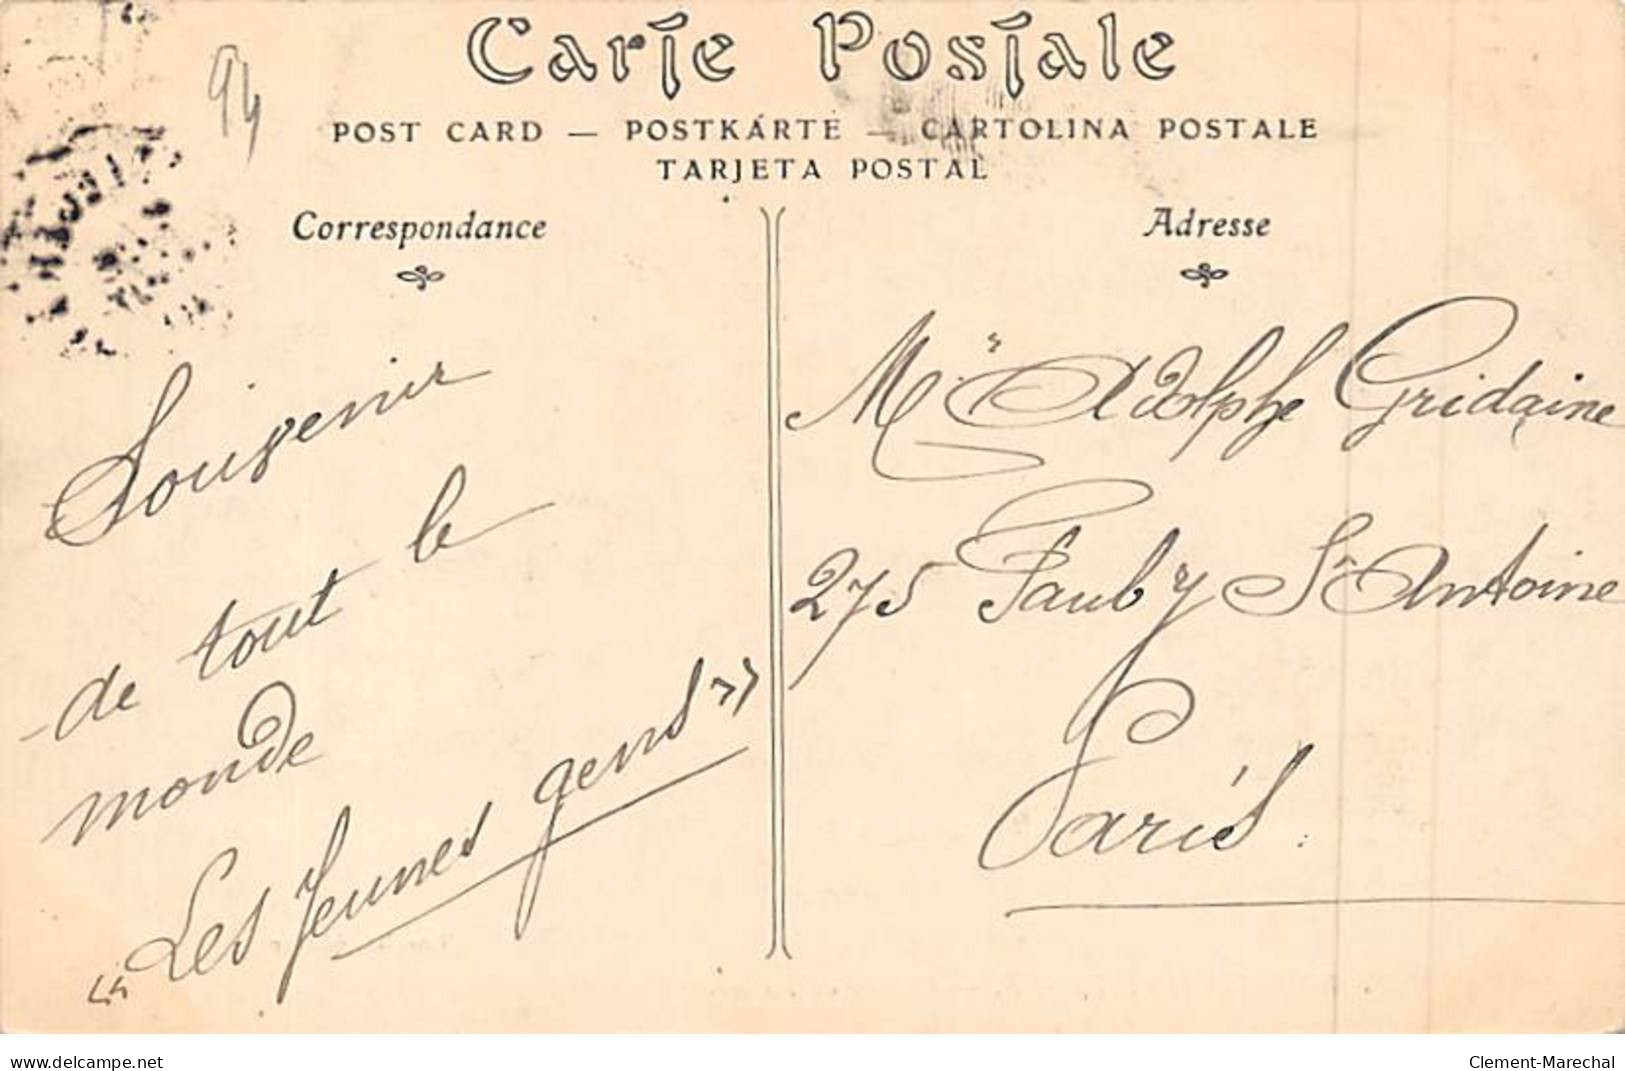 94
Carte Postale
POST CARD — POSTKARTE — CARTOLINA POSTALE
TARJETA POSTAL
Correspondance
Souvenir
de tout le
monde
"Les Jeunes gens"
Adresse
Mr Adolphe Gridaine
275 Faubg St Antoine
Paris.
www.delcampe.net
Clement-Marechal